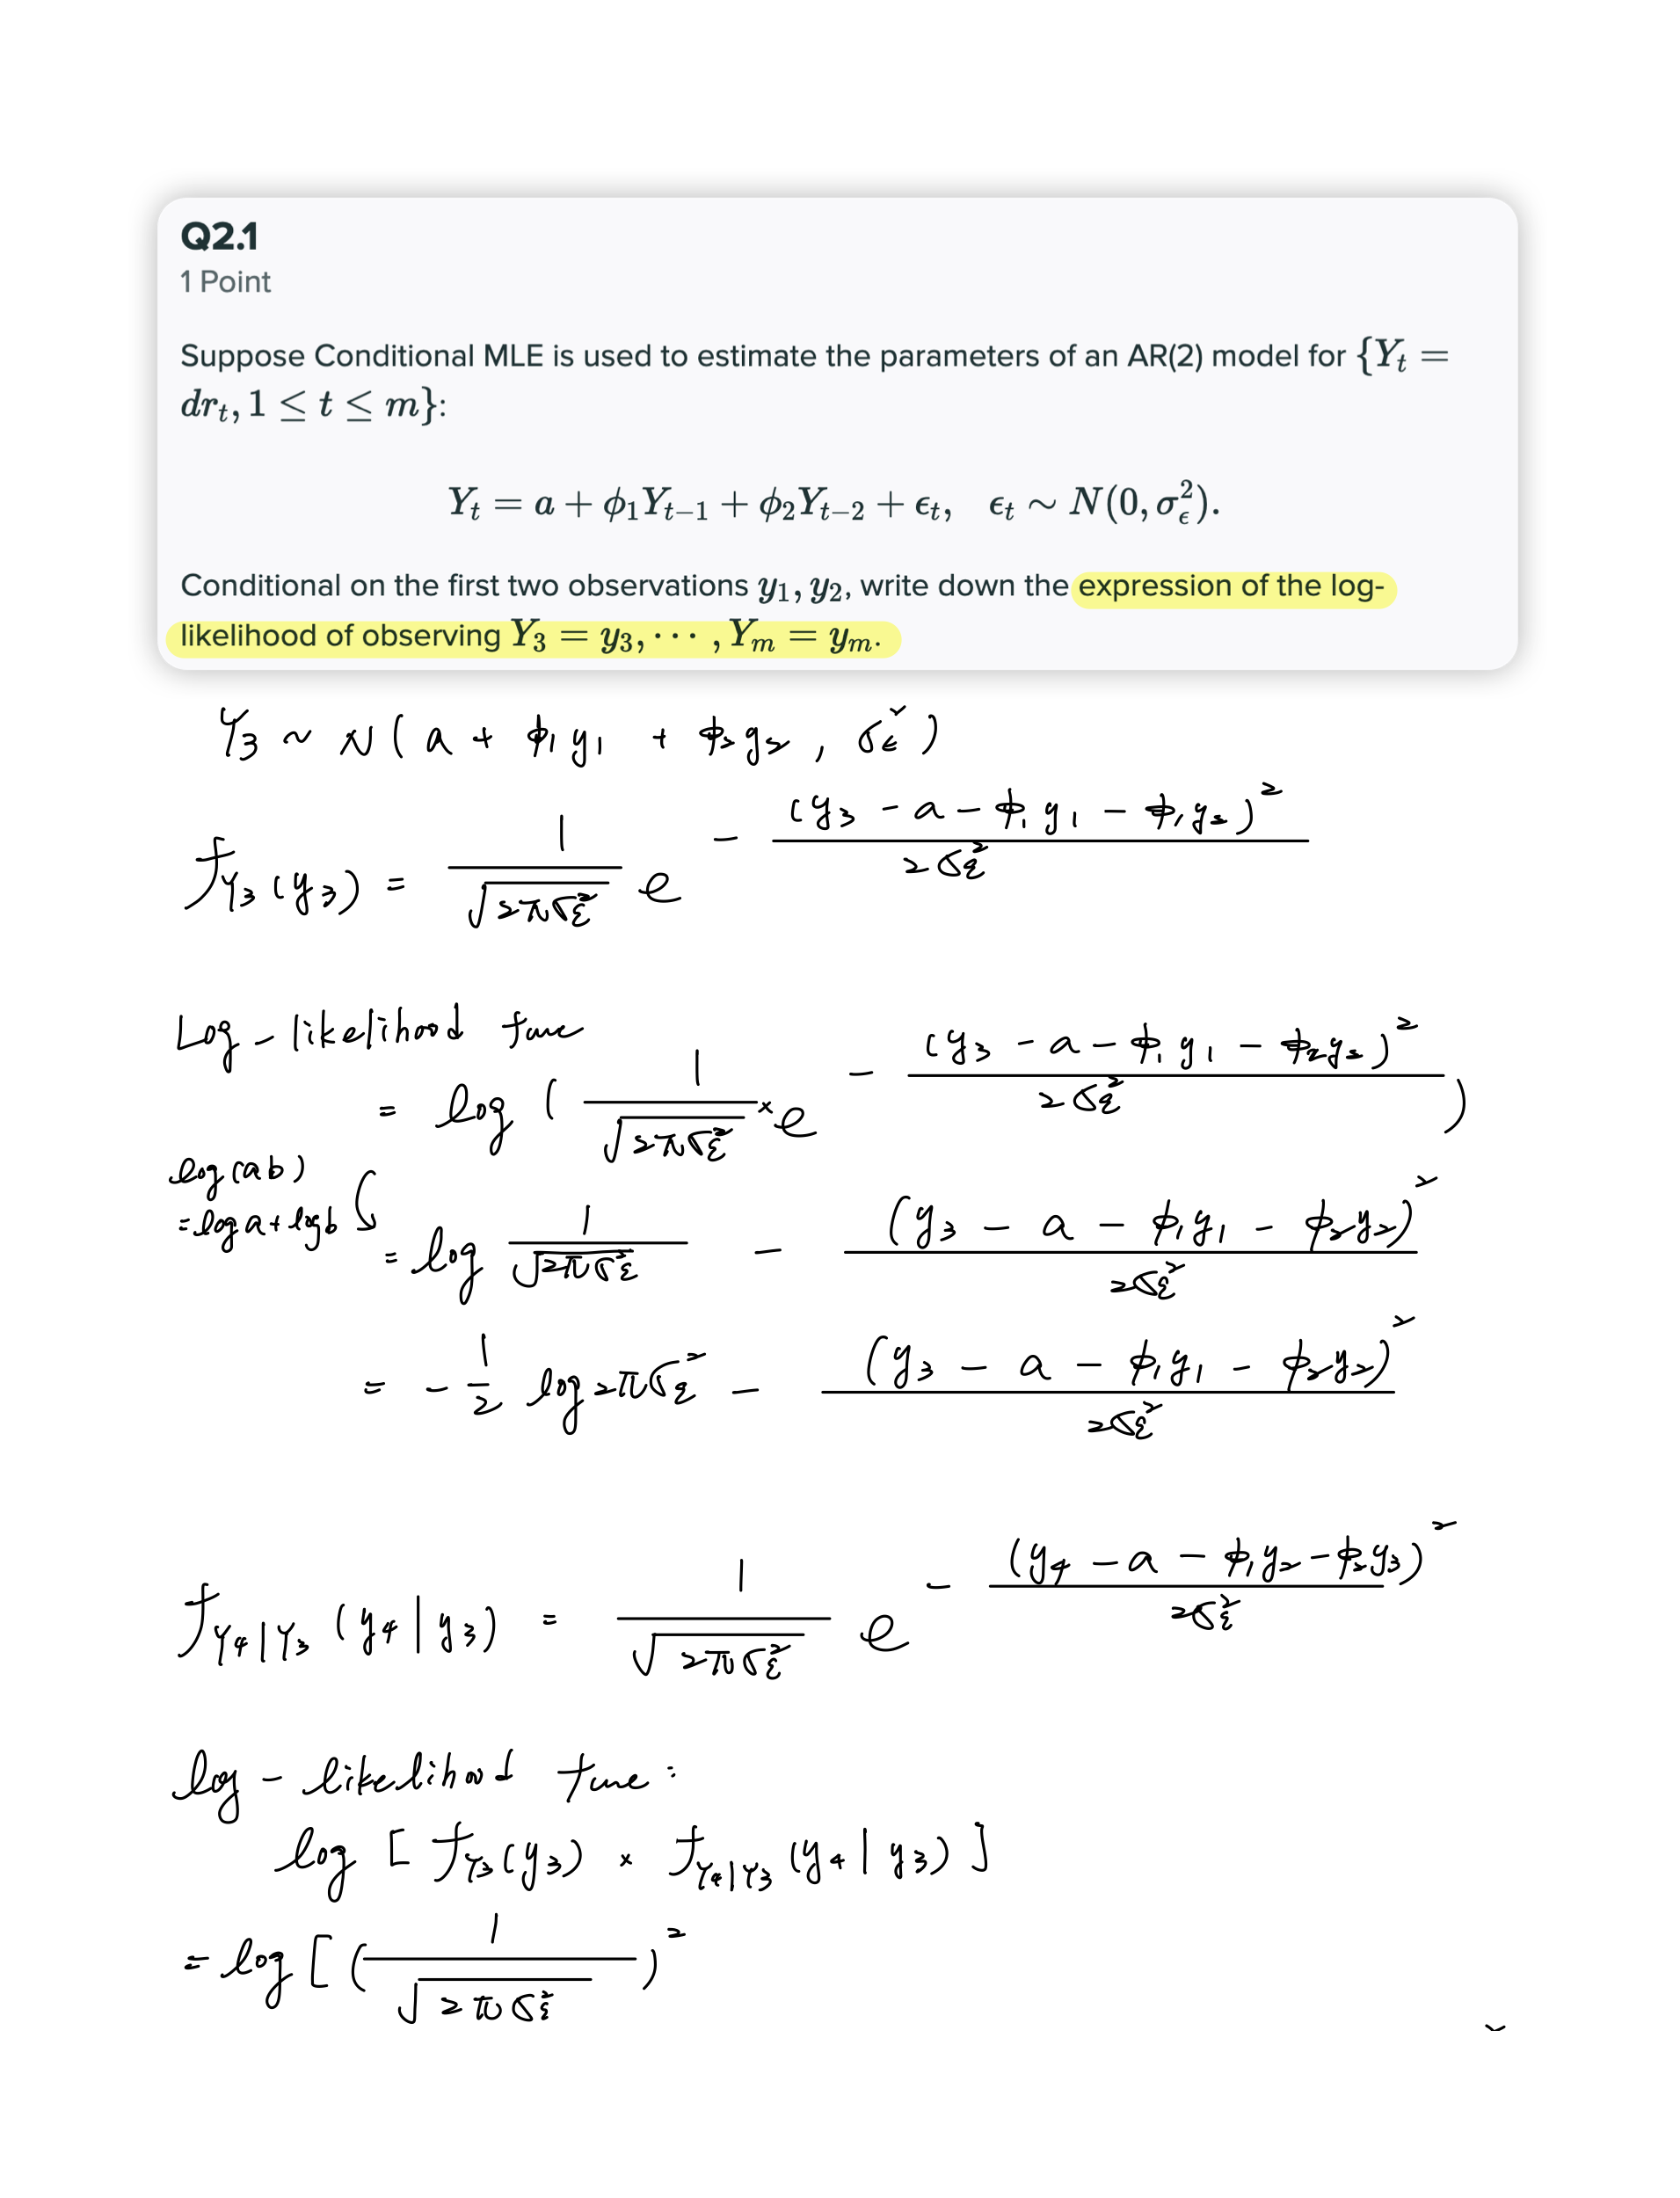 Q2.1
1 Point
Suppose Conditional MLE is used to estimate the parameters of an AR(2) model for {Y_t =
dr_t, 1 ≤ t ≤ m}:
Y_t = a + ϕ_1Y_{t−1} + ϕ_2Y_{t−2} + ϵ_t, ϵ_t ∼ N(0, σ_ϵ^2).
Conditional on the first two observations y_1, y_2, write down the expression of the log-
likelihood of observing Y_3 = y_3, ⋯ , Y_m = y_m.
Y_3 ~ N( a + ϕ_1 y_1 + ϕ_2 y_2 , σ_ϵ^2 )
f_{Y_3}(y_3) = \frac{1}{\sqrt{2πσ_ε^2}} e^{- \frac{(y_3 - a - ϕ_1 y_1 - ϕ_1 y_2)^2}{2σ_ε^2}}
Log - likelihood func
= log ( \frac{1}{\sqrt{2πσ_ε^2}} × e^{- \frac{(y_3 - a - ϕ_1 y_1 - ϕ_2 y_2)^2}{2σ_ε^2}} )
log(ab)
= log a + log b
= log \frac{1}{\sqrt{2πσ_ε^2}} - \frac{(y_3 - a - ϕ_1 y_1 - ϕ_2 y_2)^2}{2σ_ε^2}
= - \frac{1}{2} log 2πσ_ε^2 - \frac{(y_3 - a - ϕ_1 y_1 - ϕ_2 y_2)^2}{2σ_ε^2}
f_{Y_4|Y_3} (y_4 | y_3) = \frac{1}{\sqrt{2πσ_ε^2}} e^{- \frac{(y_4 - a - ϕ_1 y_2 - ϕ_2 y_3)^2}{2σ_ε^2}}
log - likelihood func :
log [ f_{Y_3}(y_3) × f_{Y_4|Y_3} (y_4 | y_3) ]
= log [ ( \frac{1}{\sqrt{2πσ_ε^2}} )^2